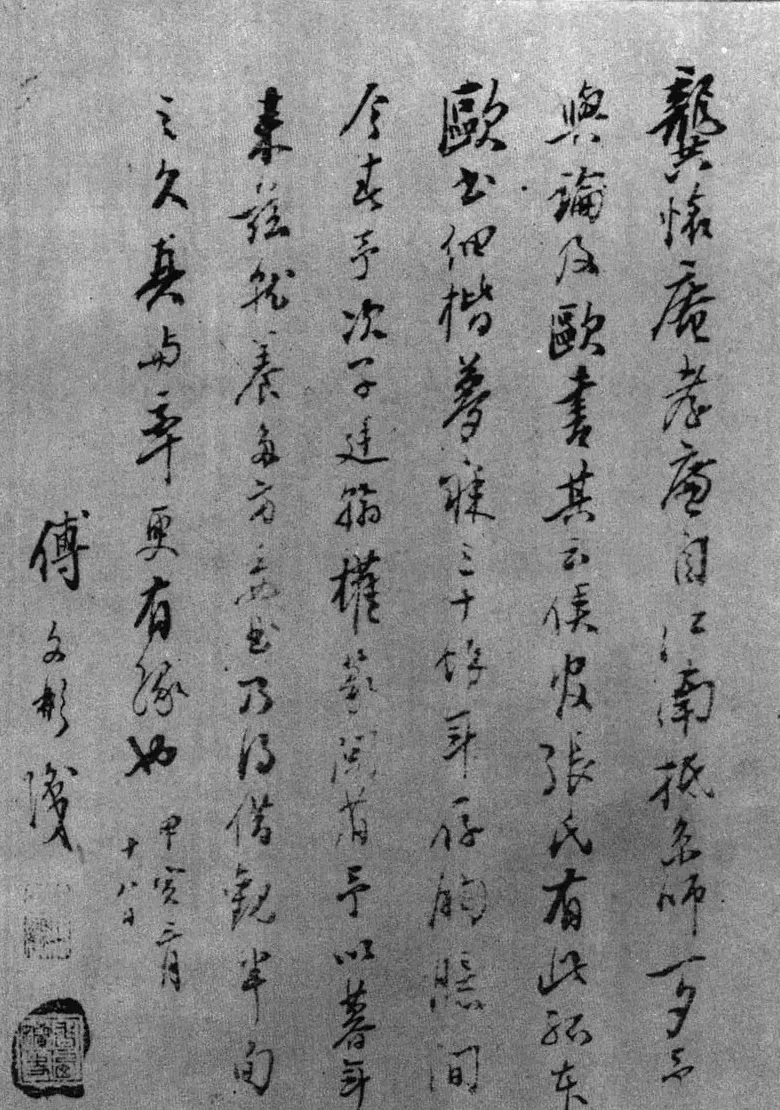 龔懷庵孝廉自江南抵京師一夕忽
與論及歐書其云侯官張氏有此孤本
歐書細楷夢寐三十餘年存胸臆間
今春予次子廷翰權篆閩省予以暮年
來茲就養多方 書乃得借觀半旬
之久真 幸更有緣也
傅文彬識
癸亥二月
十八日